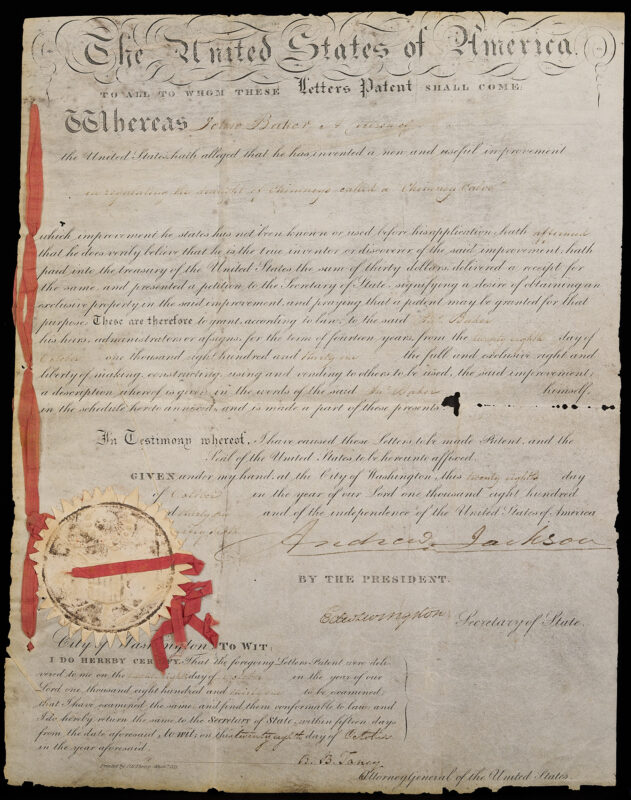 The United States of America.
TO ALL TO WHOM THESE Letters Patent SHALL COME:
Whereas John Baker a Citizen of
the United States, hath alleged that he has invented a new and useful improvement
in regulating the draught of Chimneys called a Chimney
which improvement he states has not been known or used before his application, hath affirmed
that he does verily believe that he is the true inventor or discoverer of the said improvement, hath
paid into the treasury of the United States the sum of thirty dollars, delivered a receipt for
the same, and presented a petition to the Secretary of State, signifying a desire of obtaining an
exclusive property in the said improvement, and praying that a patent may be granted for that
purpose. These are therefore to grant, according to law, to the said Jno. Baker
his heirs, administrators or assigns, for the term of fourteen years, from the twenty eighth day of
October one thousand eight hundred and thirty one the full and exclusive right and
liberty of making, constructing, using and vending to others to be used, the said improvement,
a description whereof is given in the words of the said Jno. Baker himself,
in the schedule hereto annexed, and is made a part of these presents.
In Testimony whereof, I have caused these Letters to be made Patent, and the
Seal of the United States to be hereunto affixed.
GIVEN under my hand, at the City of Washington, this twenty eighth day
of October in the year of our Lord one thousand eight hundred
thirty one and of the independence of the United States of America
Andrew Jackson
BY THE PRESIDENT.
Edw. Livingston Secretary of State.
City of Washington, TO WIT:
I DO HEREBY CERTIFY, That the foregoing Letters Patent were deli-
vered to me on the twenty eighth day of October in the year of our
Lord one thousand eight hundred and thirty one to be examined;
that I have examined the same, and find them conformable to law; and
I do hereby return the same to the Secretary of State, within fifteen days
from the date aforesaid, to wit: on this twenty eighth day of October
in the year aforesaid.
R. B. Taney
Attorney General of the United States.